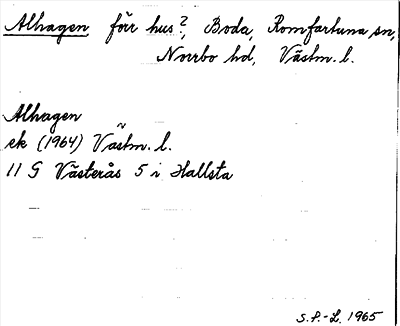 Alhagen förr hus?, Boda, Romfartuna sn,
Norrbo hd, Västm. l.
Alhagen
ek (1964) Västm. l.
11 G Västerås 5 i Hallsta
S.P.-L. 1965